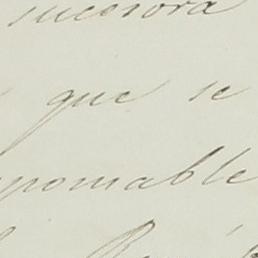 sucesora
que se
sponsable